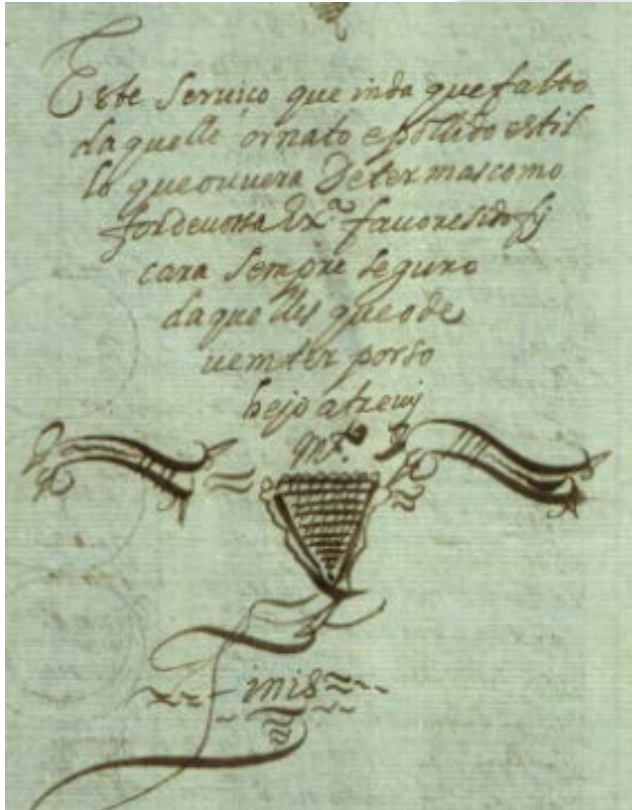 Este seruiço que inda que falto
daquelle ornato e pollido estil
lo que ouuera de ter mas como
for de uossa Ex.ª fauoresido fj
cara sempre seguro
daquelles que o de
uem ter por so
bejo atreuj
mt.º
inis